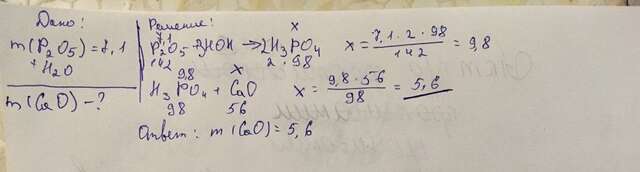 Дано:
m(P₂O₅) = 7,1
+ H₂O
m(CaO) - ?
Решение:
7,1 x
P₂O₅ + 3HOH → 2H₃PO₄ x = 7,1 · 2 · 98 / 142 = 9,8
142 2 · 98
9,8 x
H₃PO₄ + CaO x = 9,8 · 56 / 98 = 5,6
98 56
Ответ: m(CaO) = 5,6